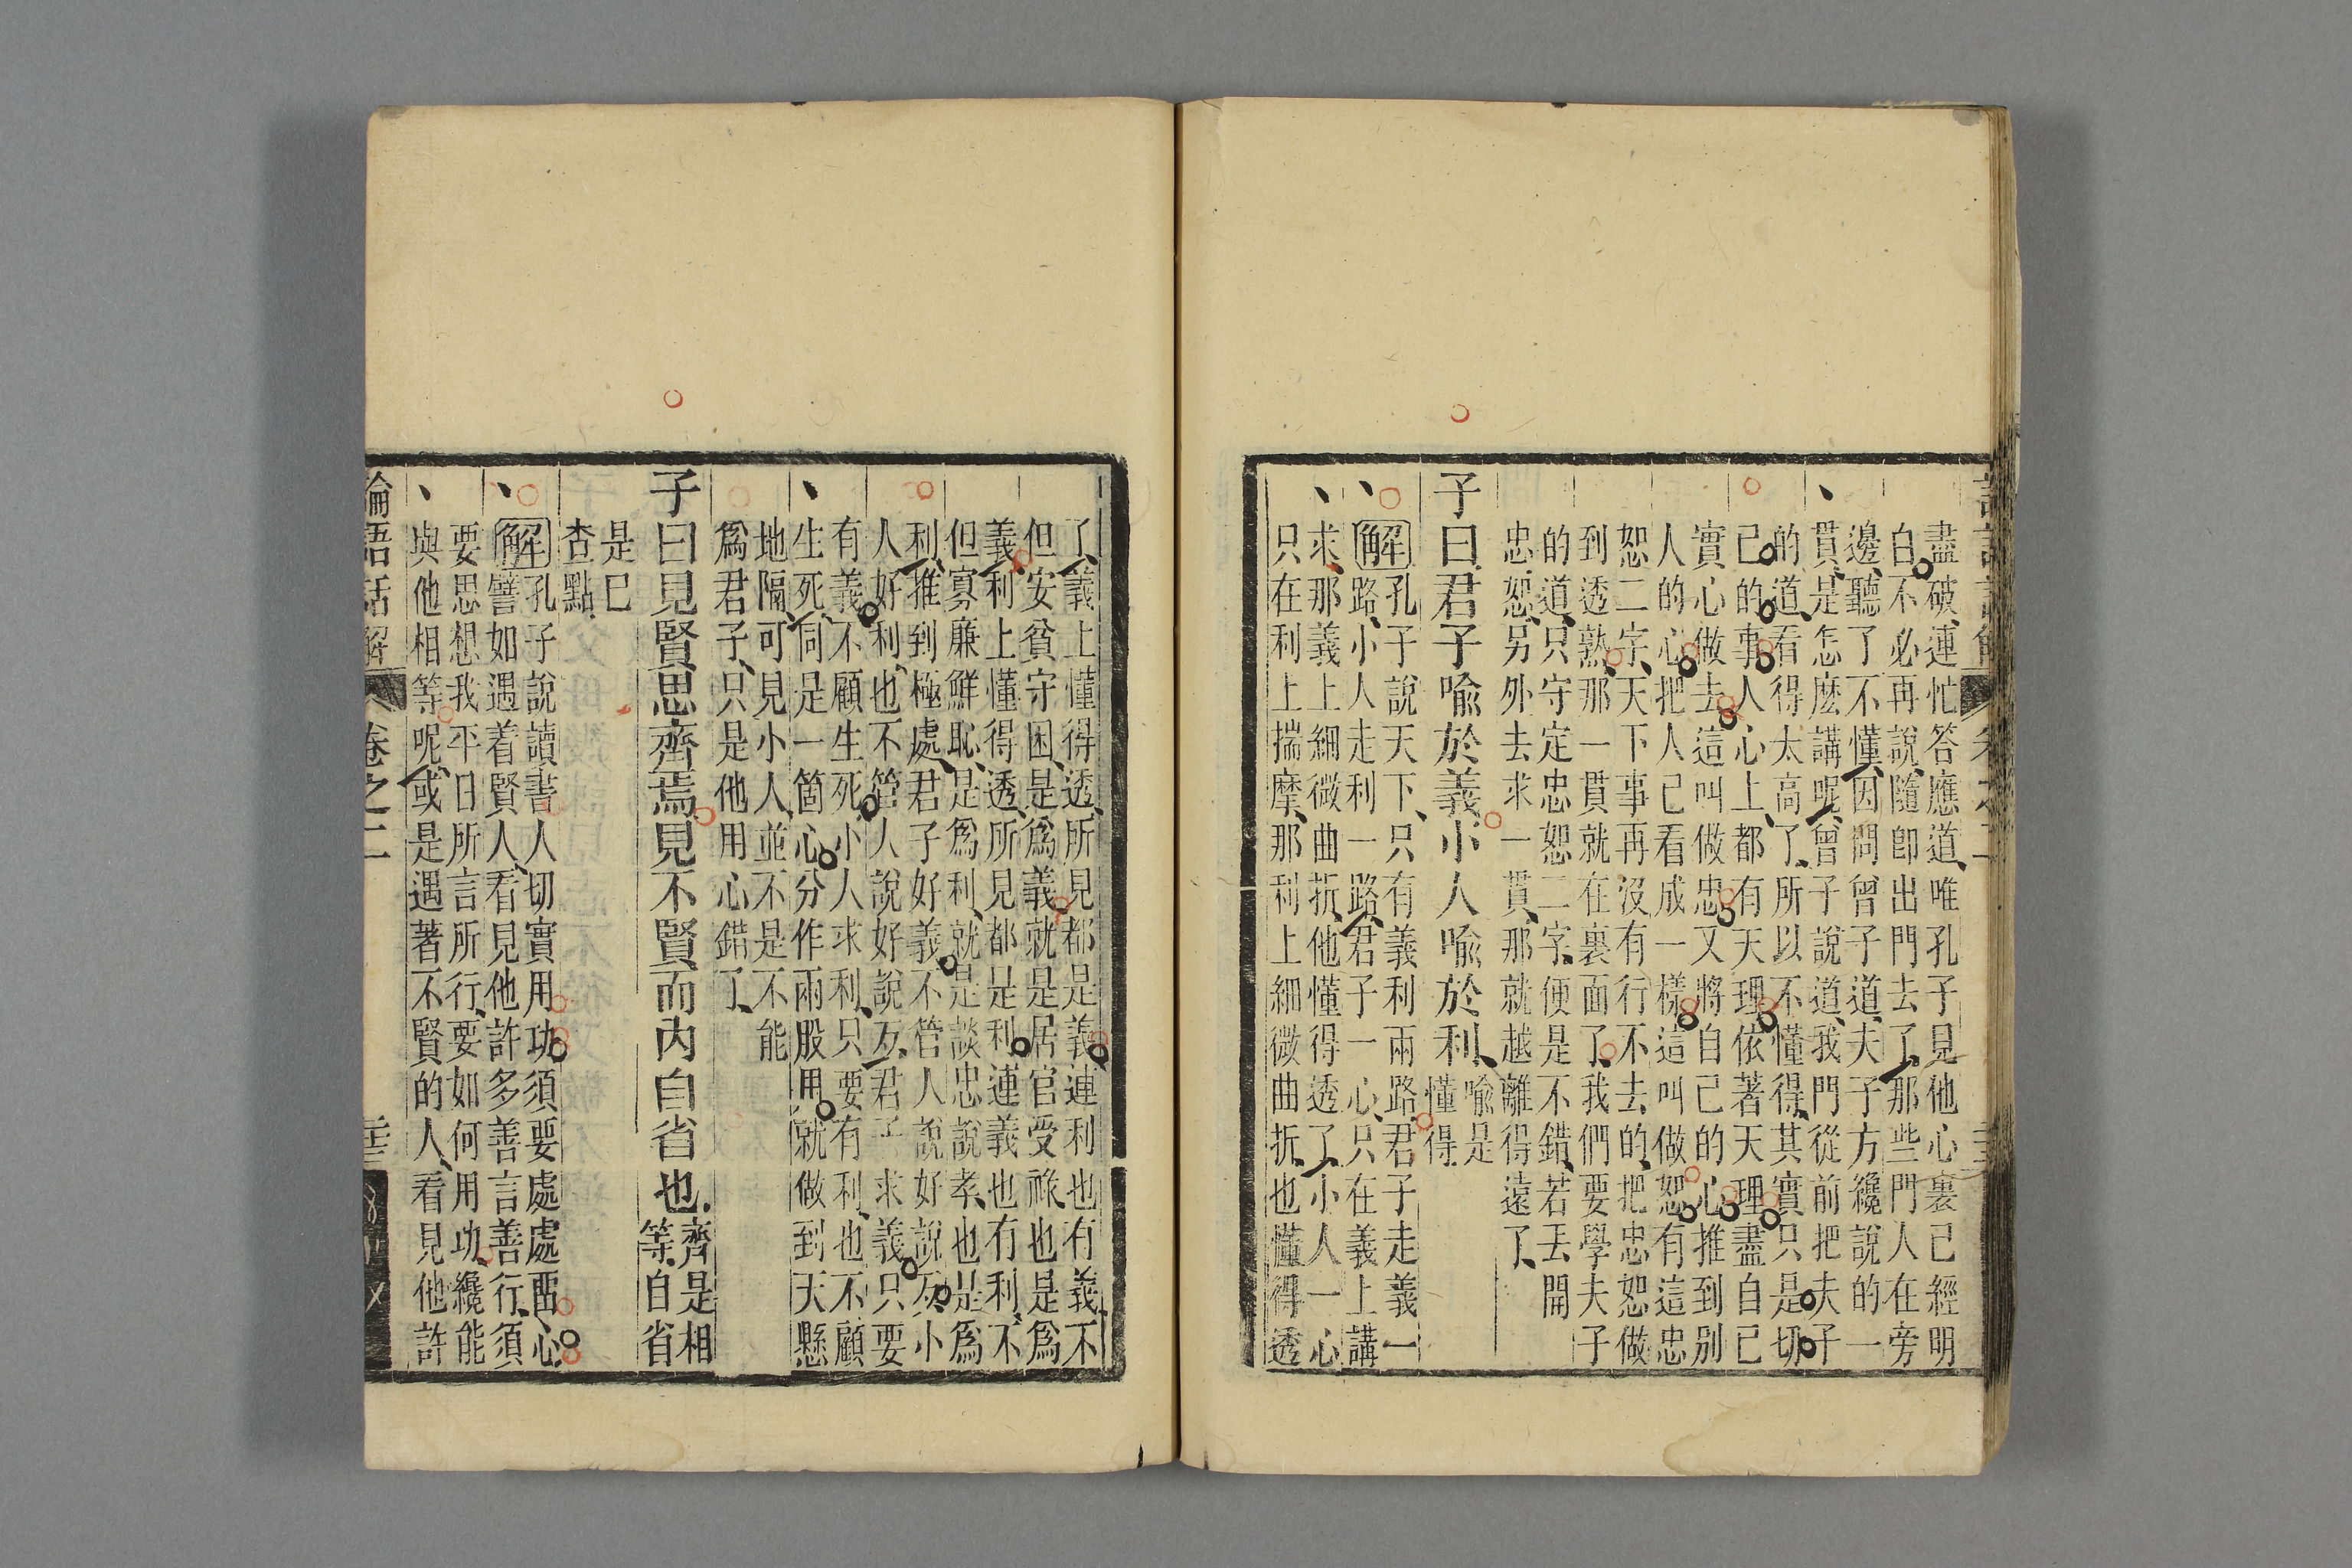 盡破連忙答應道唯孔子見他心裏已經明
白不必再說隨卽出門去了那些門人在旁
邊聽了不懂因問曾子道夫子方纔說的一
貫是怎麽講呢曾子說道我門從前把夫子
的道看得太高了所以不懂得其實只是切
己的事人心上都有天理依著天理盡自己
實心做去這叫做忠又將自己的心推到別
人的心把人己看成一樣這叫做恕有這忠
恕二字天下事再沒有行不去的把忠恕做
到透熟那一貫就在裏面了我們要學夫子
的道只守定忠恕二字便是不錯若丟開
忠恕另外去求一貫那就越離得遠了
子曰君子喻於義小人喻於利
喻是
懂得
解孔子說天下只有義利兩路君子走義一
路小人走利一路君子一心只在義上講
求那義上細微曲折他懂得透了小人一心
只在利上揣摩那利上細微曲折也懂得透
了義上懂得透所見都是義連利也有義不
但安貧守困是爲義就是居官受祿也是爲
義利上懂得透所見都是利連義也有利不
但寡廉鮮恥是爲利就是談忠說孝也是爲
利推到極處君子好義不管人說好說歹小
人好利也不管人說好說歹君子求義只要
有義不顧生死小人求利只要有利也不顧
生死同是一箇心分作兩股用就做到天懸
地隔可見小人並不是不能
爲君子只是他用心錯了
子曰見賢思齊焉見不賢而內自省也
齊是相
等自省
是己
查點
解孔子說讀書人切實用功須要處處畱心
譬如遇着賢人看見他許多善言善行須
要思想我平日所言所行要如何用功纔能
與他相等呢或是遇著不賢的人看見他許
論語話解 卷之二